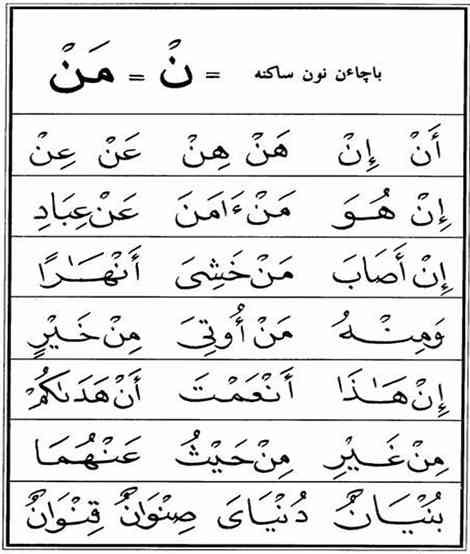 باچاءن نون ساكنه = نْ = مَنْ
أَنْ إِنْ هَنْ هِنْ عَنْ عِنْ
إِنْ هُوَ مَنْ ءَامَنَ عَنْ عِبَادِ
إِنْ أَصَابَ مَنْ خَشِىَ أَنْهَـٰرًا
وَمِنْهُ مَنْ أُوتِىَ مِنْ خَيْرٍ
إِنْ هَـٰذَا أَنْعَمْتَ أَنْ هَدَىٰكُمْ
مِنْ غَيْرِ مِنْ حَيْثُ عَنْهُمَا
بُنْيَانٌ دُنْيَاىَ صِنْوَانٌ قِنْوَانٌ